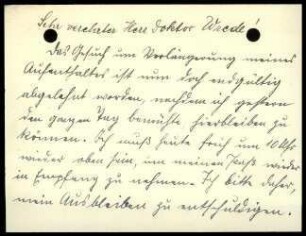 Sehr verehrter Herr Doktor Wrede!
Das Gesuch um Verlängerung meines
Aufenthaltes ist nun doch endgültig
abgelehnt worden, nachdem ich gestern
den ganzen Tag bemühte hierbleiben zu
können. Ich muß heute früh um 10 Uhr
wieder oben sein, um meinen Paß wieder
in Empfang zu nehmen. Ich bitte daher,
mein Ausbleiben zu entschuldigen.